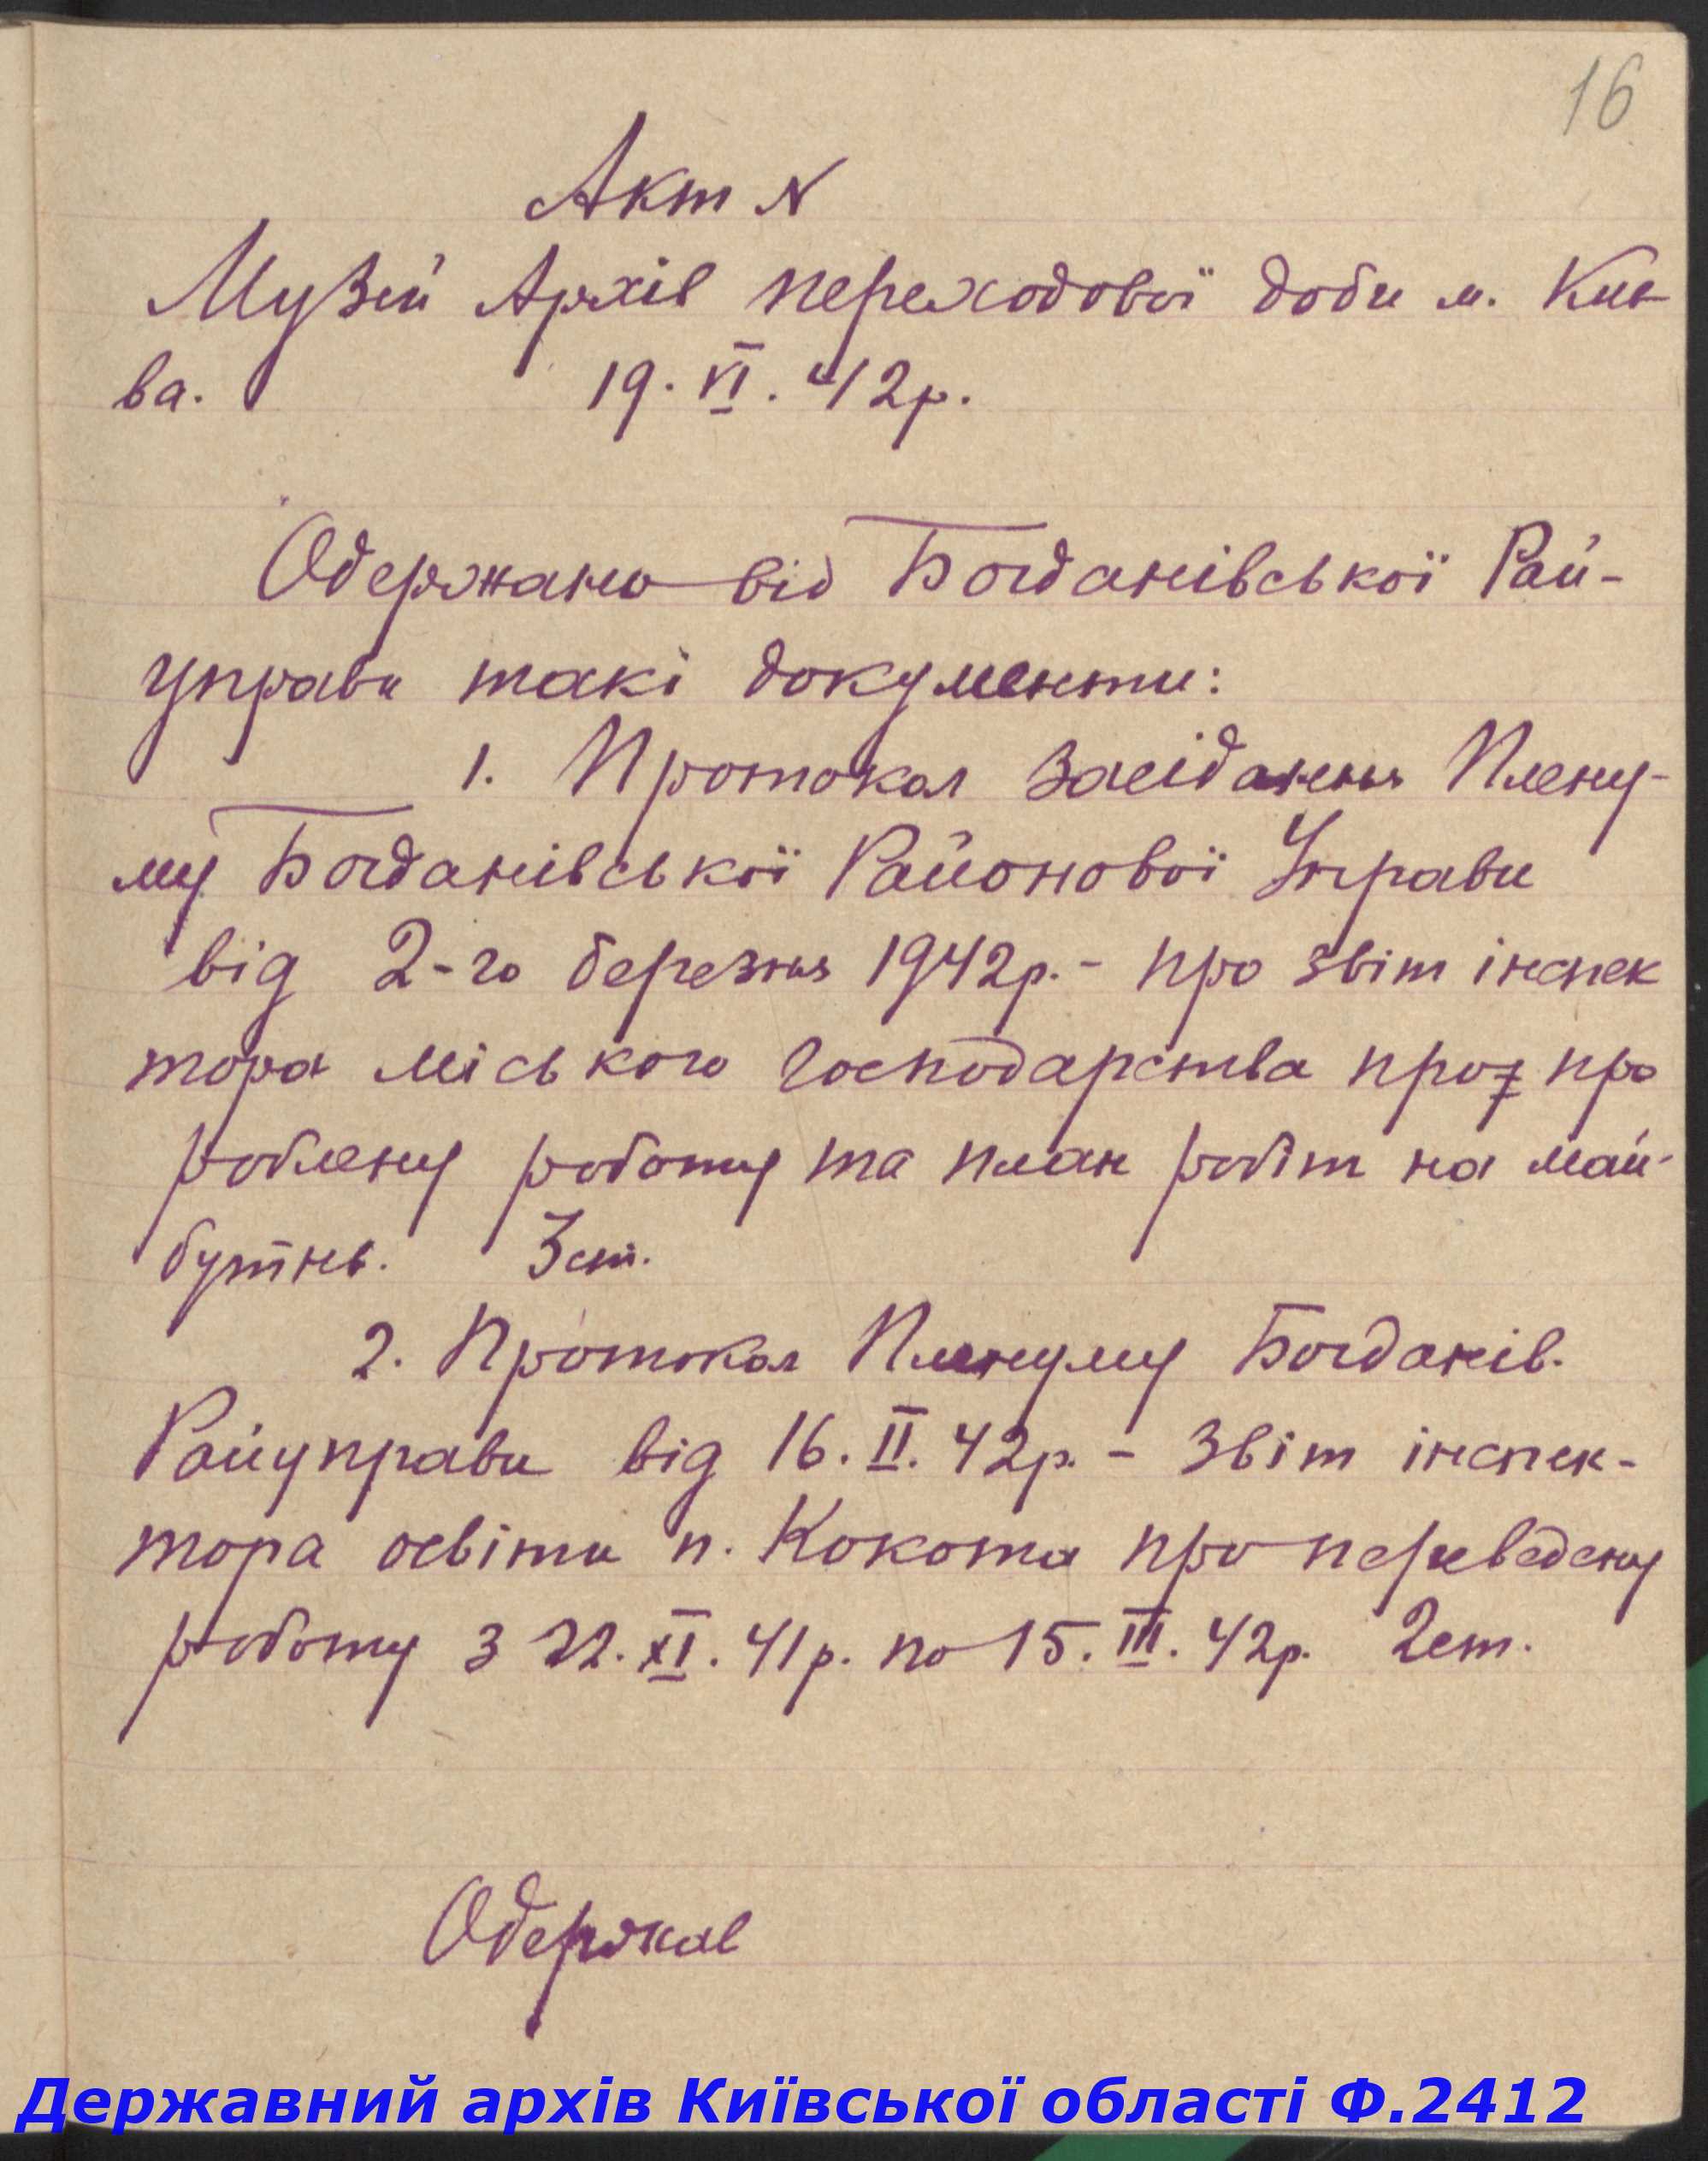 16
Акт №
Музей Архів переходової доби м. Киє
ва. 19. VI. 42р.
Одержано від Богданівської Рай-
управи такі документи:
1. Протокол засідання Плену-
му Богданівської Районової Управи
від 2-го березня 1942р. - про звіт інспек
тора міського господарства про про
роблену роботу та план робіт на май-
бутнє. 3 ст.
2. Протокол Пленуму Богданів.
Райуправи від 16. II. 42р. - звіт інспек-
тора освіти п. Кокота про переведену
роботу з 22. XI. 41р. по 15. III. 42р. 2 ст.
Одержав
Державний архів Київської області Ф.2412